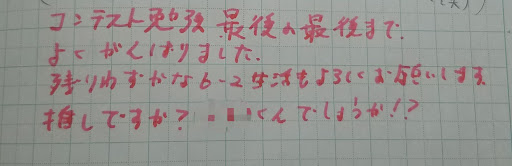 コンテスト勉強 最後の最後まで
よくがんばりました。
残りわずかな6-2生活もよろしくお願いします
推しですか? くんでしょうか!?